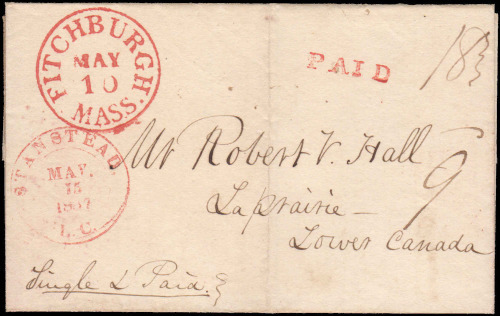 FITCHBURGH. MASS.
MAY
10
PAID
18¾
STANSTEAD L.C.
MAY.
15
1837
Mr Robert V. Hall
9
Laprairie —
Lower Canada
Single & Paid.